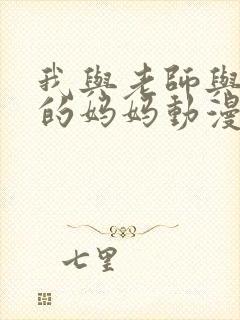 我與老師與
的妈妈動漫
七里